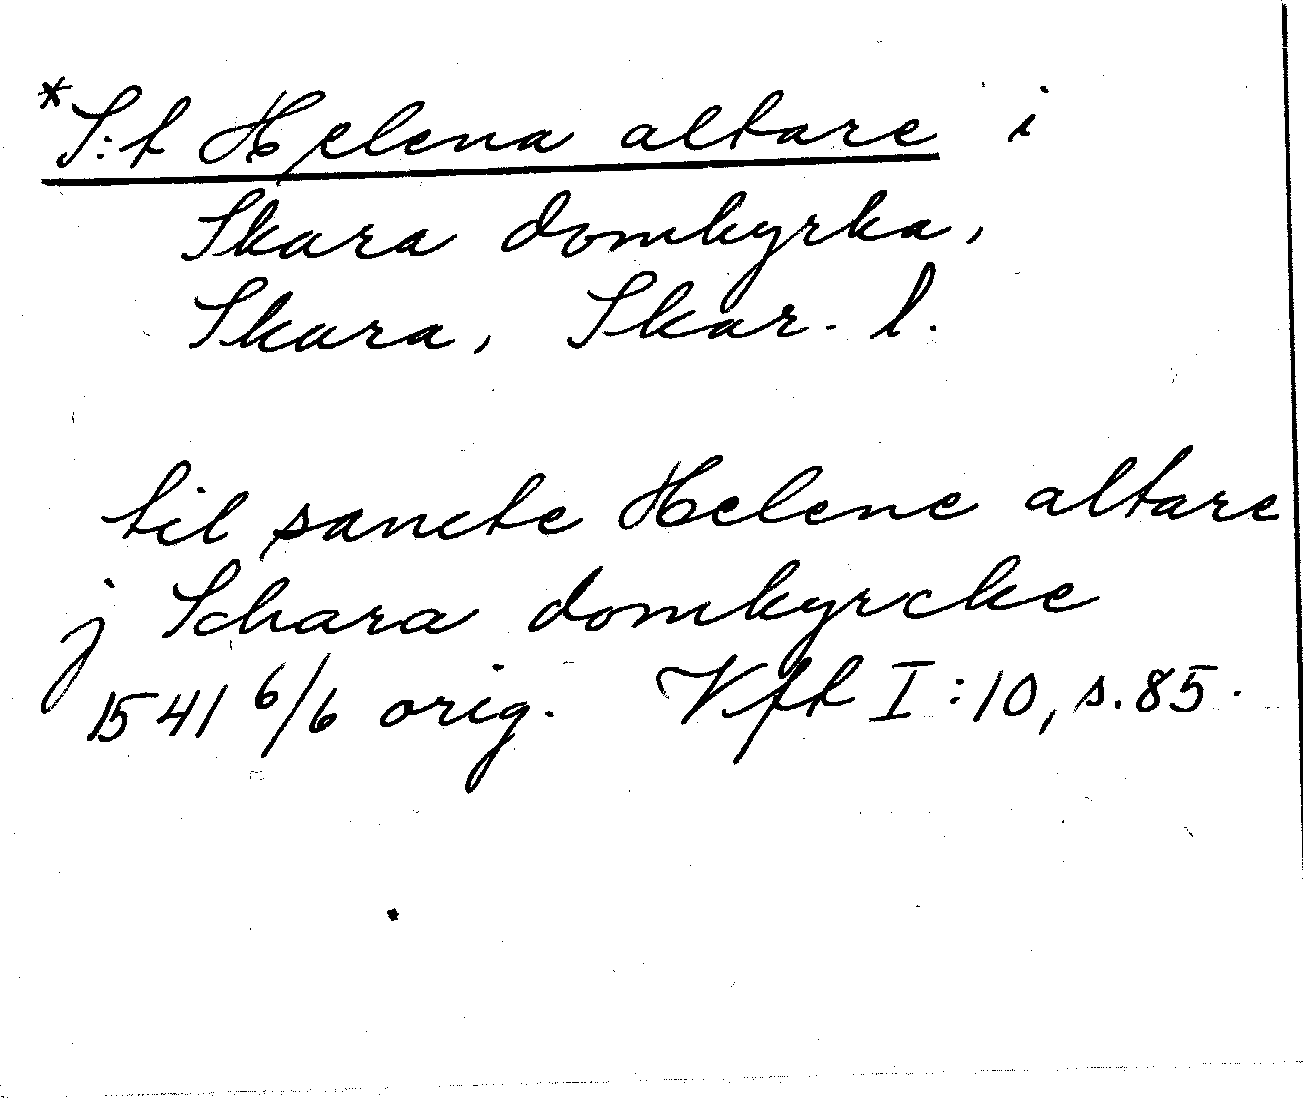 *S:t Helena altare i
Skara domkyrka,
Skara, Skar. l.
til sancte Helene altare
j Schara domkyrcke
1541 6/6 orig. Vft I:10, s. 85.